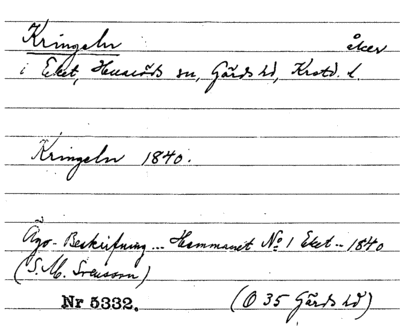 Kringeln åker
i Eket, Huaröds sn, Gärds hd, Krstd. l.
Kringeln 1840.
Ägo-Beskrifning... Hemmanet No 1 Eket... 1840
(S. M. Svensson)
Nr 5332. (O 35 Gärds hd)